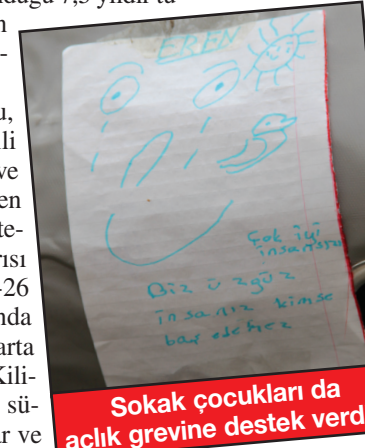 7,5
-
u,
ili
ve
en
te-
rısı
-26
nda
arta
Kili-
sü-
ar ve
EREN
Çok iyi
insansın
Biz ü zgüz
insanız kimse
edemez
Sokak çocukları da
açlık grevine destek verd